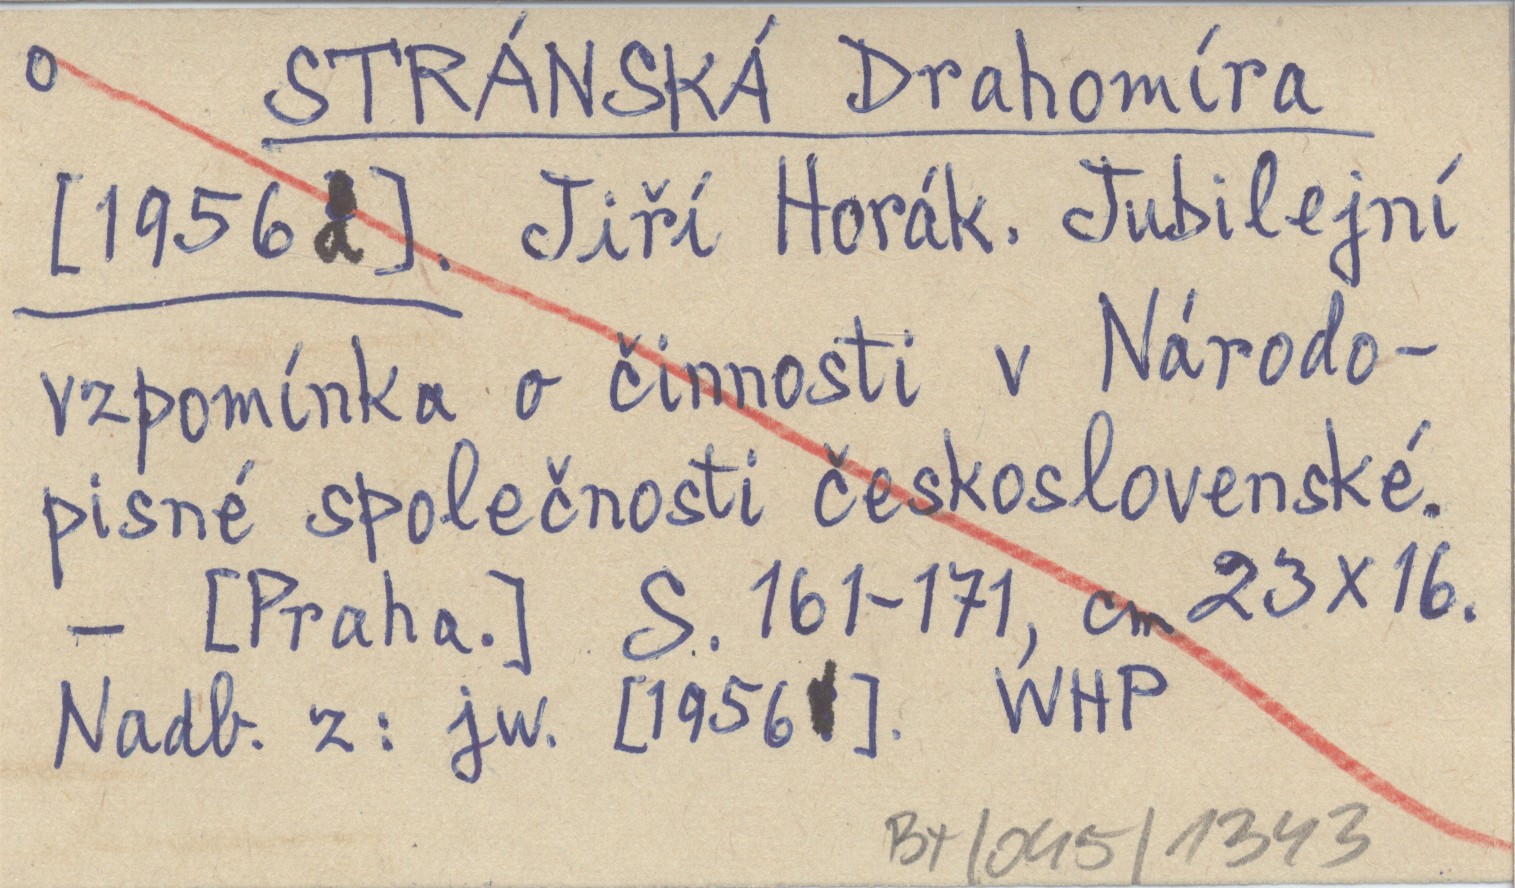 o STRÁNSKÁ Drahomíra
[1956a]. Jiří Horák. Jubilejní
vzpomínka o činnosti v Národo-
pisné společnosti československé.
- [Praha.] S. 161-171, cm 23x16.
Nadb. z: jw. [1956]. WHP
B+/045/1343